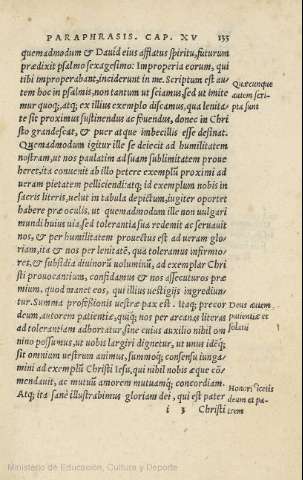 PARAPHRASIS. CAP. XV 135
quemadmodum & Dauid eius afflatus spiritu, futurum
prædixit psalmo sexagesimo: Improperia eorum, qui
tibi improperabant, inciderunt in me. Scriptum est au-
tem hoc in psalmis, non tantum ut sciamus, sed ut imite
mur quoq;, atq; ex illius exemplo discamus, qua lenita-
te sit proximus sustinendus ac fouendus, donec in Chri
sto grandescat, & puer atque imbecillis esse desinat.
Quemadmodum igitur ille se deiecit ad humilitatem
nostram, ut nos paulatim ad suam sublimitatem proue
heret, ita conuenit ab illo petere exemplū proximi ad
ueram pietatem pelliciendi: atq; id exemplum nobis in
sacris literis, uelut in tabula depictum, iugiter oportet
habere præ oculis, ut quemadmodum ille non uulgari
mundi huius uia, sed tolerantia sua redemit ac seruauit
nos, & per humilitatem prouectus est ad ueram glo-
riam, ita & nos per lenitatē, qua toleramus infirmio-
res, & subsidia diuinorū uoluminū, ad exemplar Chri
sti prouocantium, confidamus & nos assecuturos præ
mium, quod manet eos, qui illius uestigijs ingrediun-
tur. Summa professionis uestræ pax est. Itaq; precor
deum, autorem patientiæ, quiq; nos per arcanas literas
ad tolerantiam adhortatur, sine cuius auxilio nihil om
nino possumus, ut uobis largiri dignetur, ut unus idēq;
sit omnium uestrum animus, summoq; consensu iunga-
mini ad exemplū Christi Iesu, qui nihil nobis æque cō-
mendauit, ac mutuū amorem mutuamq; concordiam.
Atq; ita sanè illustrabimus gloriam dei, qui est pater
i 3 Christi
Quæcunque
autem scri-
pta sunt
Deus autem
patientiæ et
solatij
Honorificetis
deum et pa-
trem
Ministerio de Educación, Cultura y Deporte